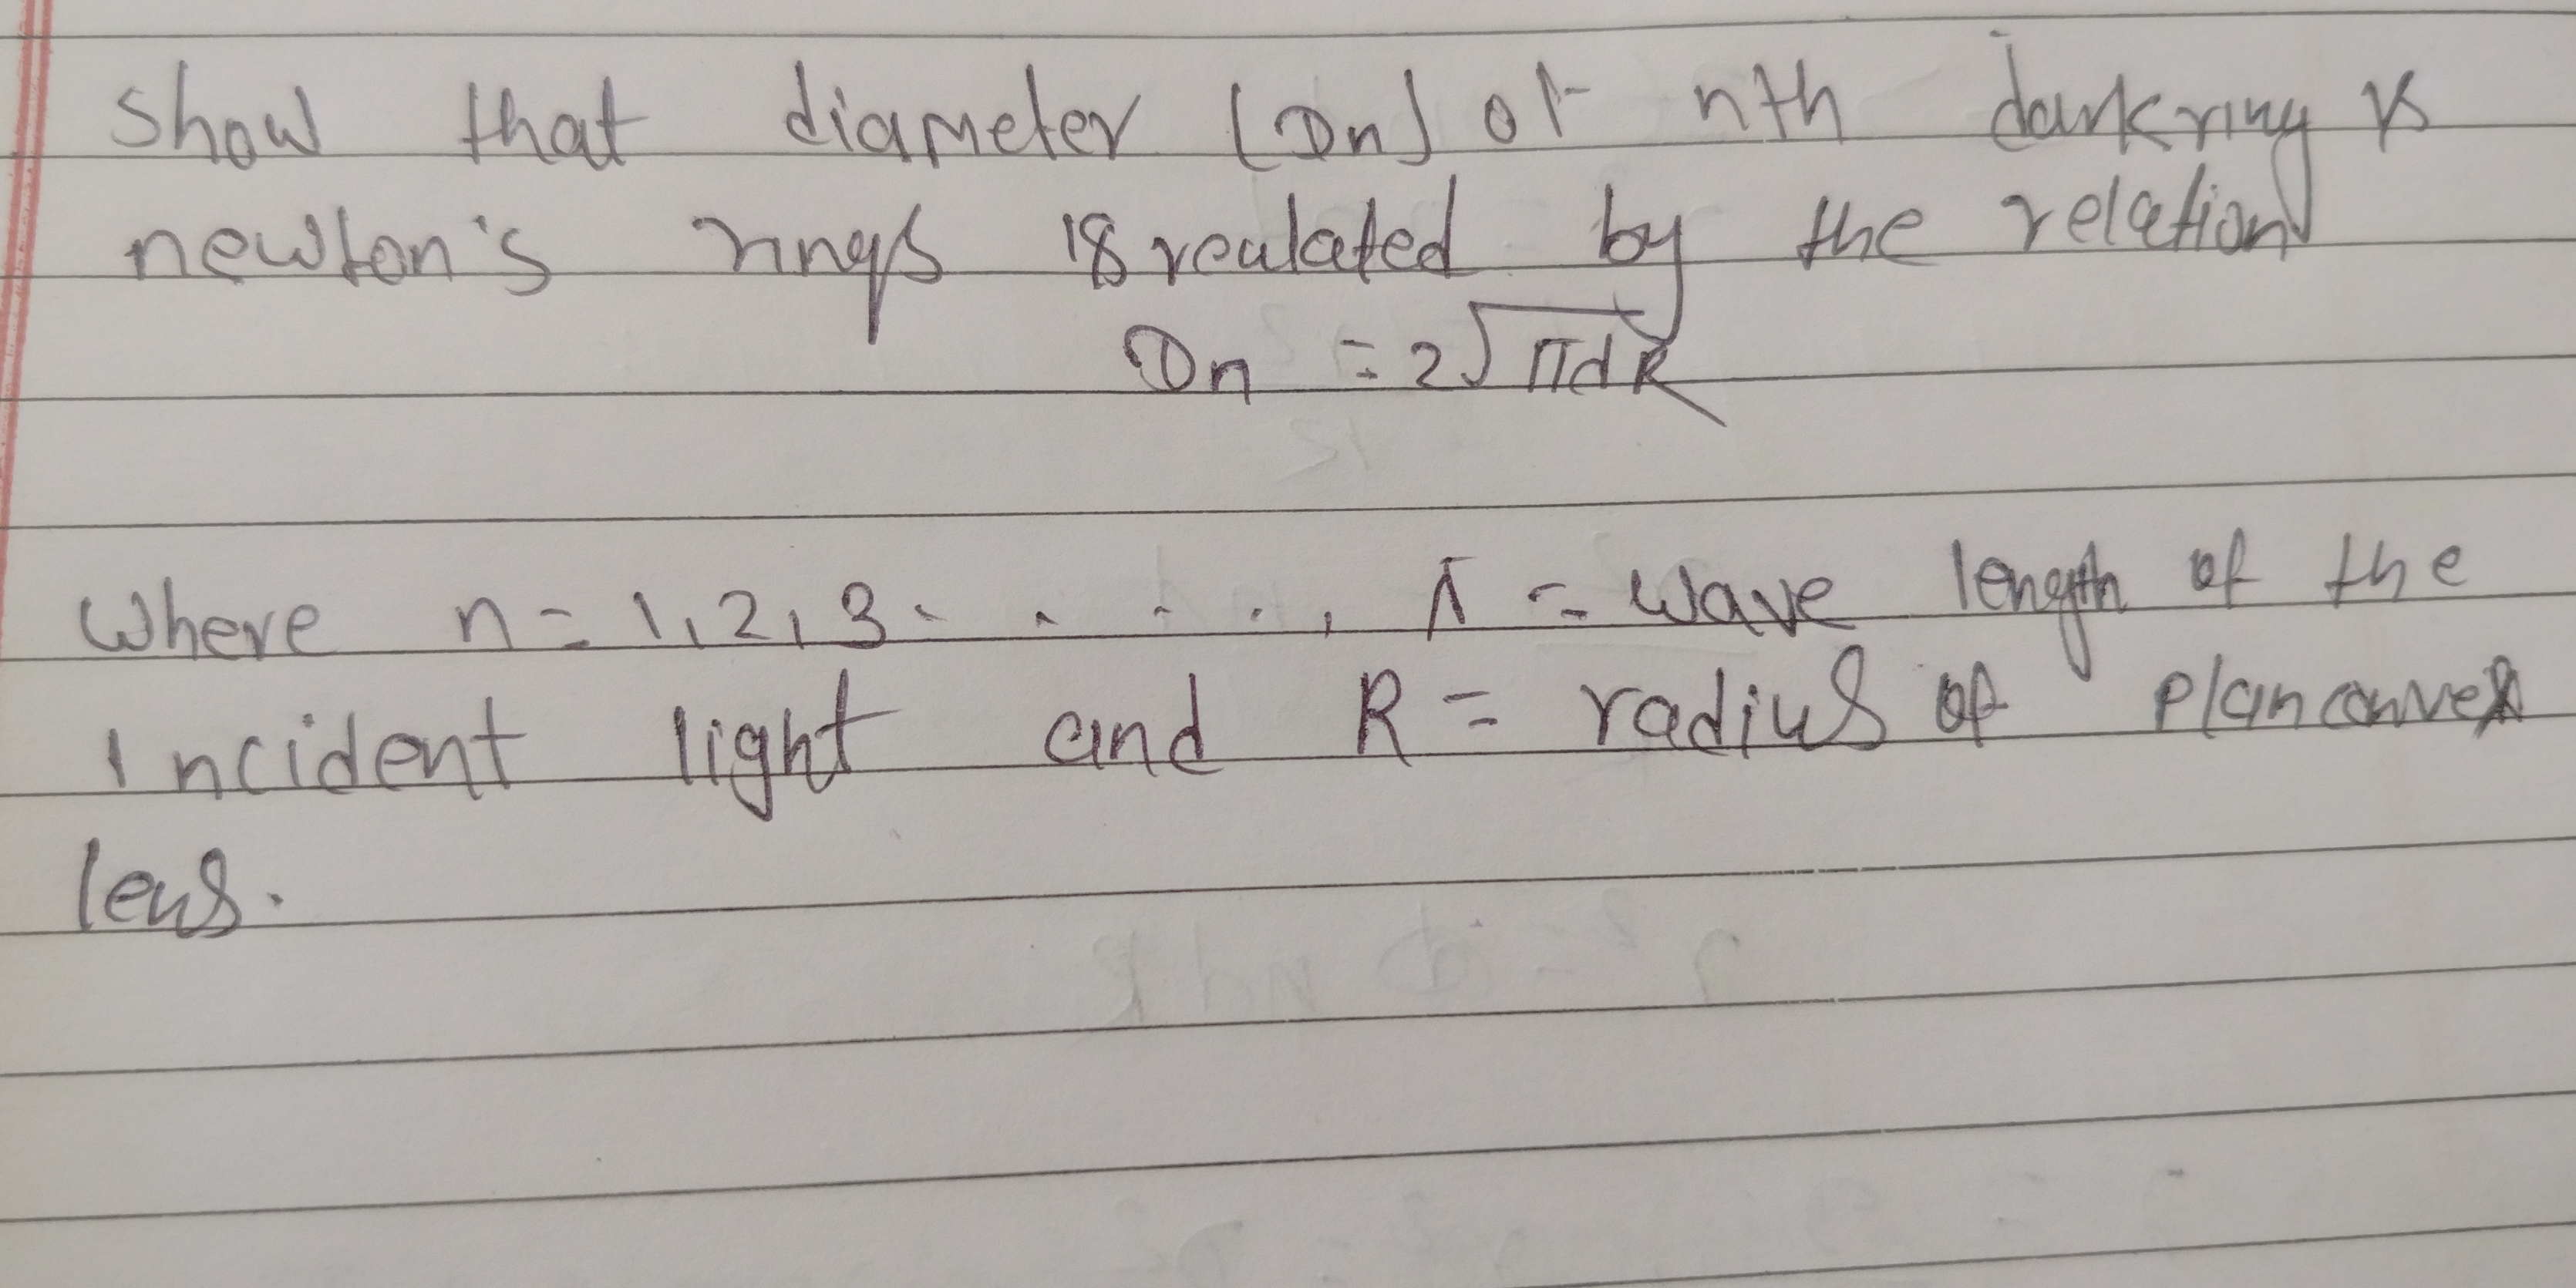 show that diameter (Dn) of nth dark ring is
newton's rings is realated by the relation
Dn = 2√ndR
Where n = 1, 2, 3 . . . . , λ = wave length of the
Incident light and R = radius of planconvex
lens.